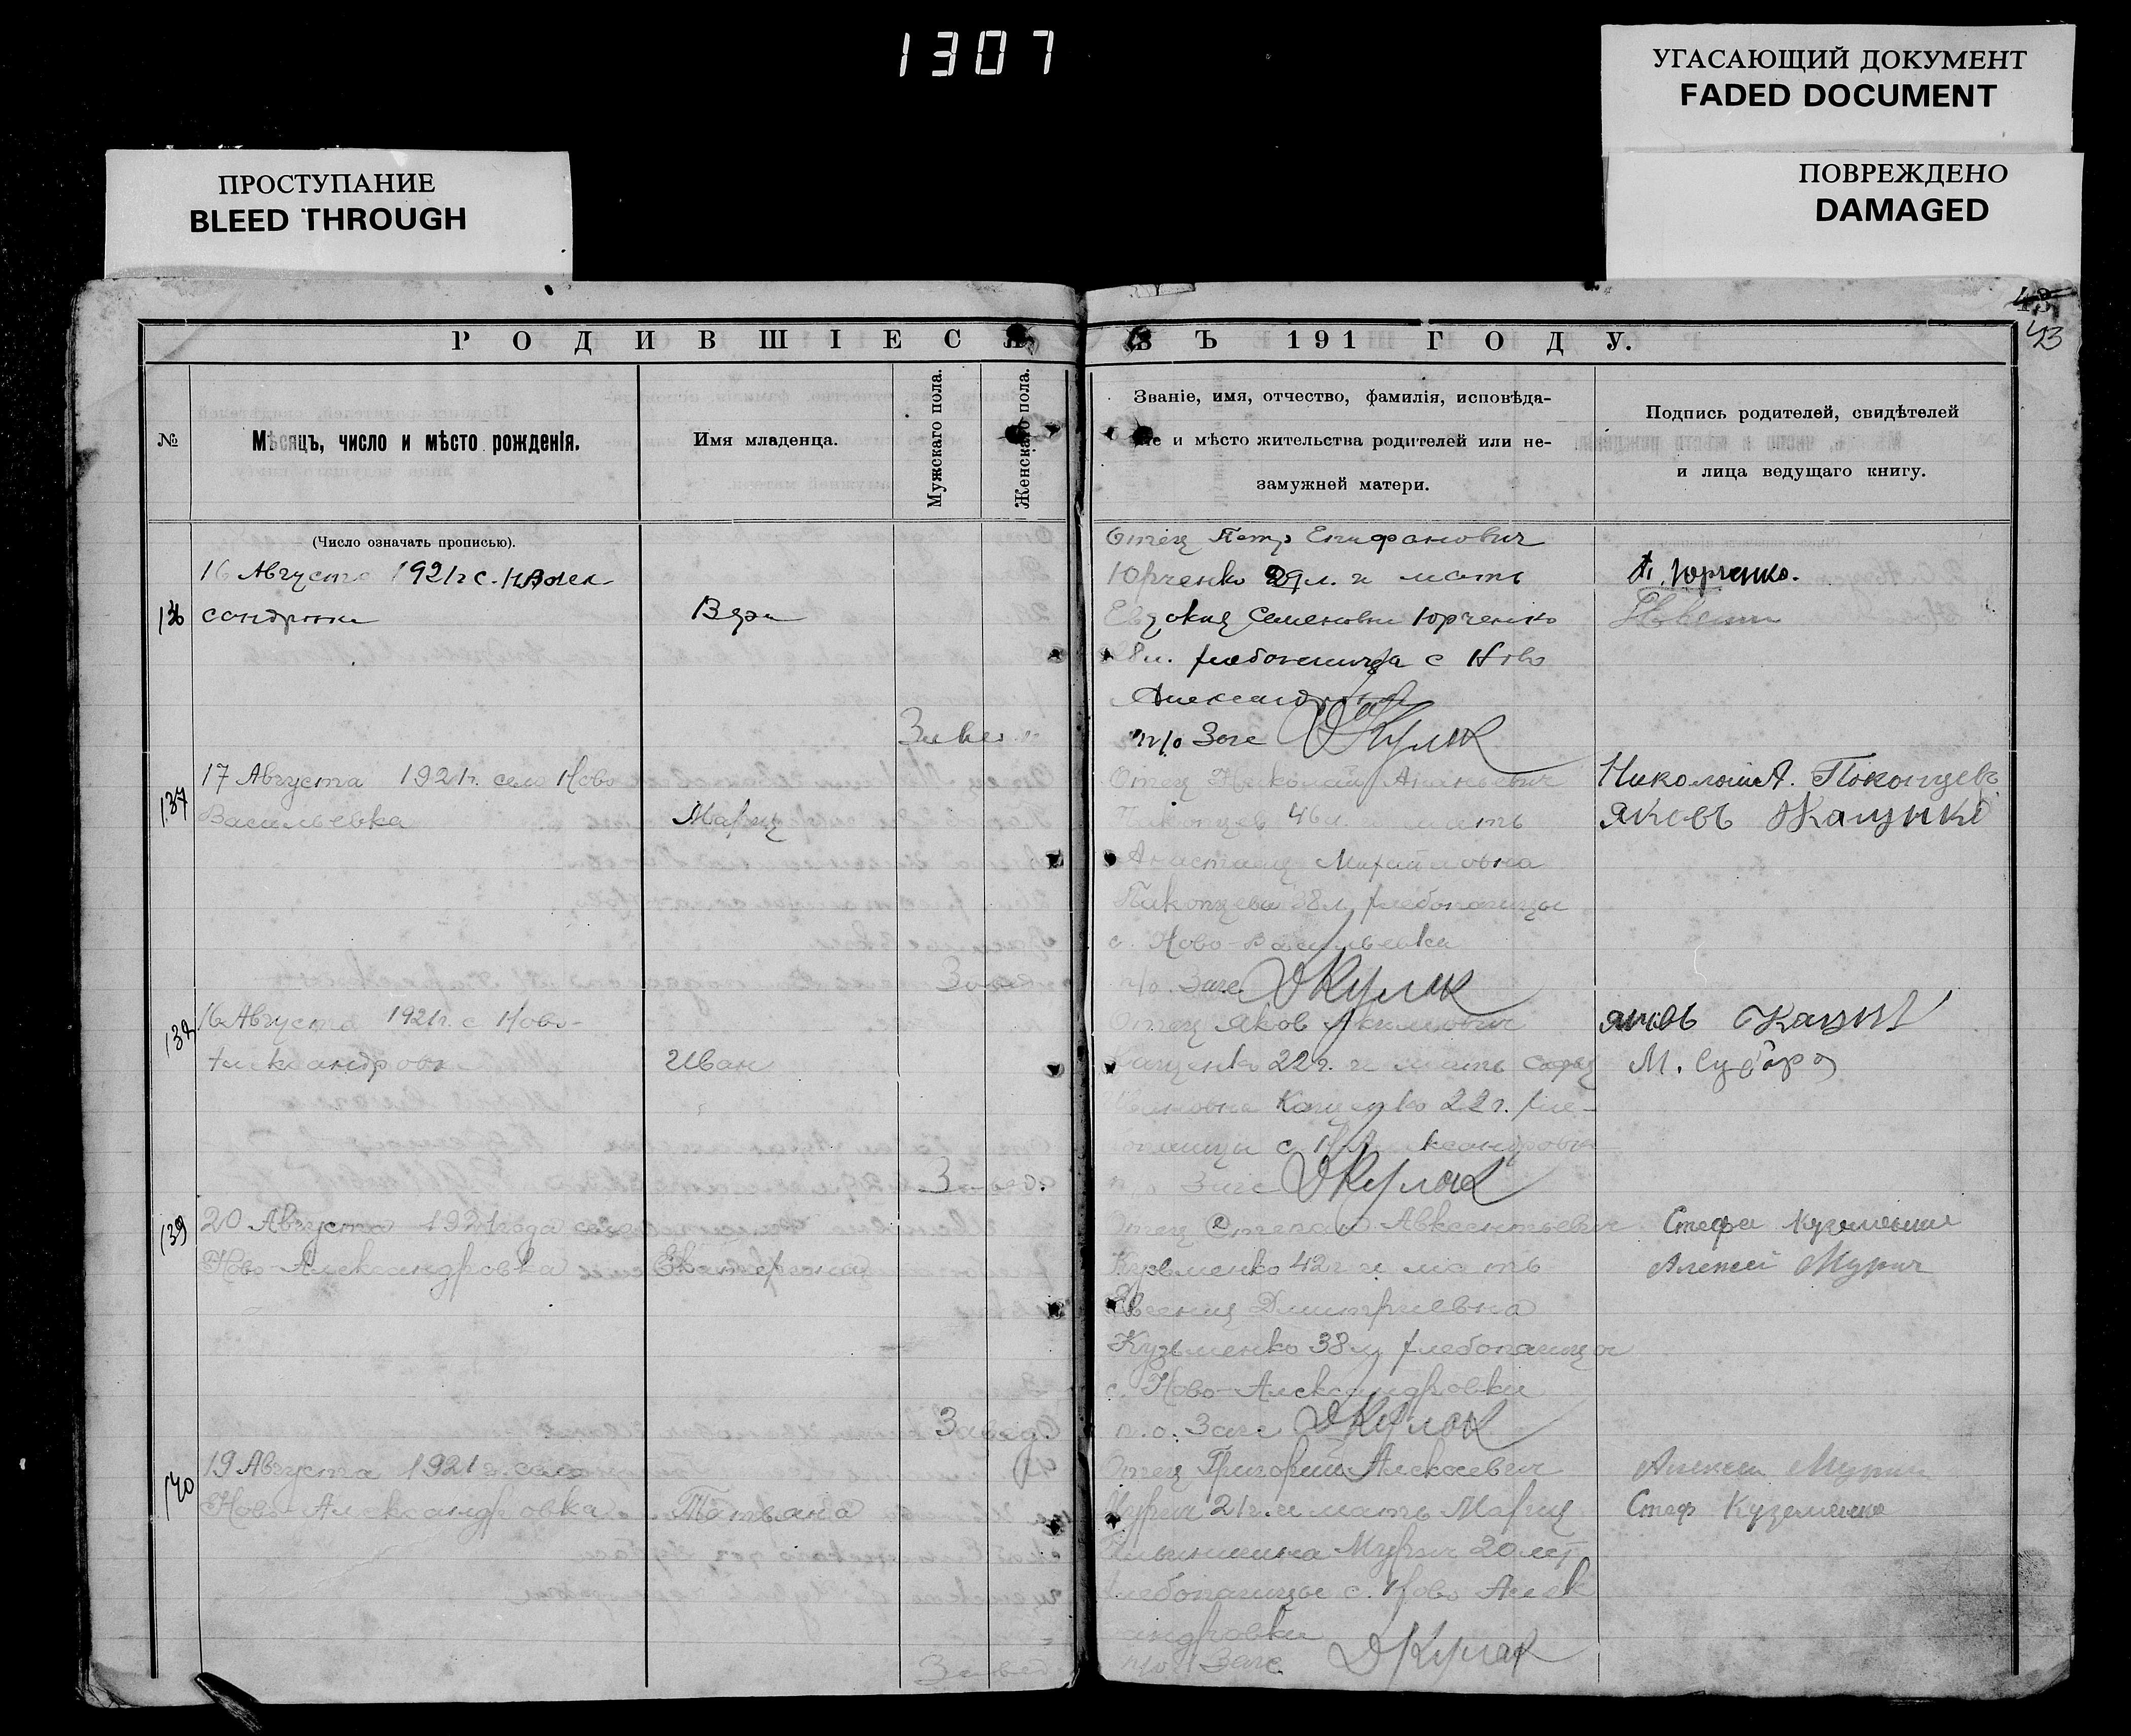 1307
УГАСАЮЩИЙ ДОКУМЕНТ
FADED DOCUMENT
ПРОСТУПАНИЕ
BLEED THROUGH
ПОВРЕЖДЕНО
DAMAGED
43
43
РОДИВШІЕСЯ ВЪ 191 ГОДУ.
№
Мѣсяцъ, число и мѣсто рожденія.
Имя младенца.
Мужскаго пола.
Женскаго пола.
Званіе, имя, отчество, фамилія, исповѣда-
ніе и мѣсто жительства родителей или не-
замужней матери.
Подпись родителей, свидѣтелей
и лица ведущаго книгу.
(Число означать прописью).
136
16 Августа 1921 г с. Н Алек
сандровка
Вера
Отец Петр Епифанович
Юрченко 29 л. и мать
Евдокия Семеновна Юрченко
28 л. хлебопашцы с Ново
Александровка
Завед
п/о Заге ДКулак
П. Юрченко.
137
17 Августа 1921 г. село Ново
Васильевка
Мария
Отец Николай Ананьевич
46 л. и мать
Анастасия Михайловна
38 л. хлебопашцы
с. Ново-Васильевка
Завед
п/о Заге ДКулак
Николай А.
Яковъ
138
16 Августа 1921 г. с Ново-
Александровка
Иван
Отец Яков Акимович
Кащенко 22 г. и мать
Кащенко 22 г. хле-
бопашцы с Н Александровка
Завед.
п/о Заге ДКулак
Яковъ
М.
139
20 Августа 1921 года село
Ново-Александровка
Екатерина
Отец Стефан Авксентьевич
Кузьменко 42 г и мать
Евгения Димитриевна
Кузьменко 38 л хлебопашцы
с. Ново-Александровки
Завед.
п.о. Заге ДКулак
Стефа Куземенко
Алексей Мурич
140
19 Августа 1921 г. село
Ново-Александровка
Татьяна
Отец Григорий Алексеевич
Мурич 21 г. и мать Мария
Мурич 20 лет
хлебопашцы с. Ново Алек
сандровки
Завед
п/о Заге ДКулак
Алексей Мурич
Стеф Куземенко